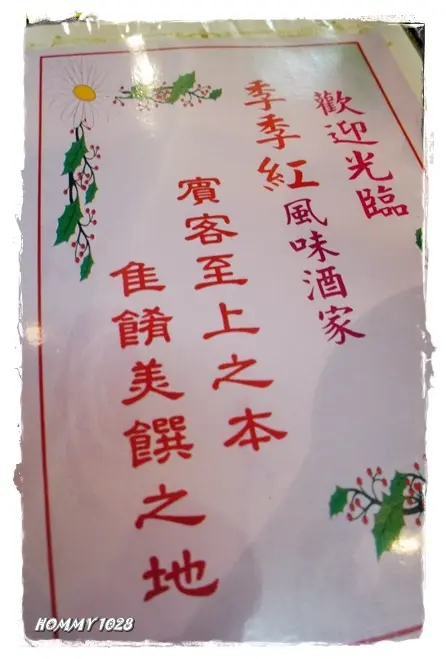 歡迎光臨
季季紅風味酒家
賓客至上之本
隹餚美饌之地
HOMMY 1028